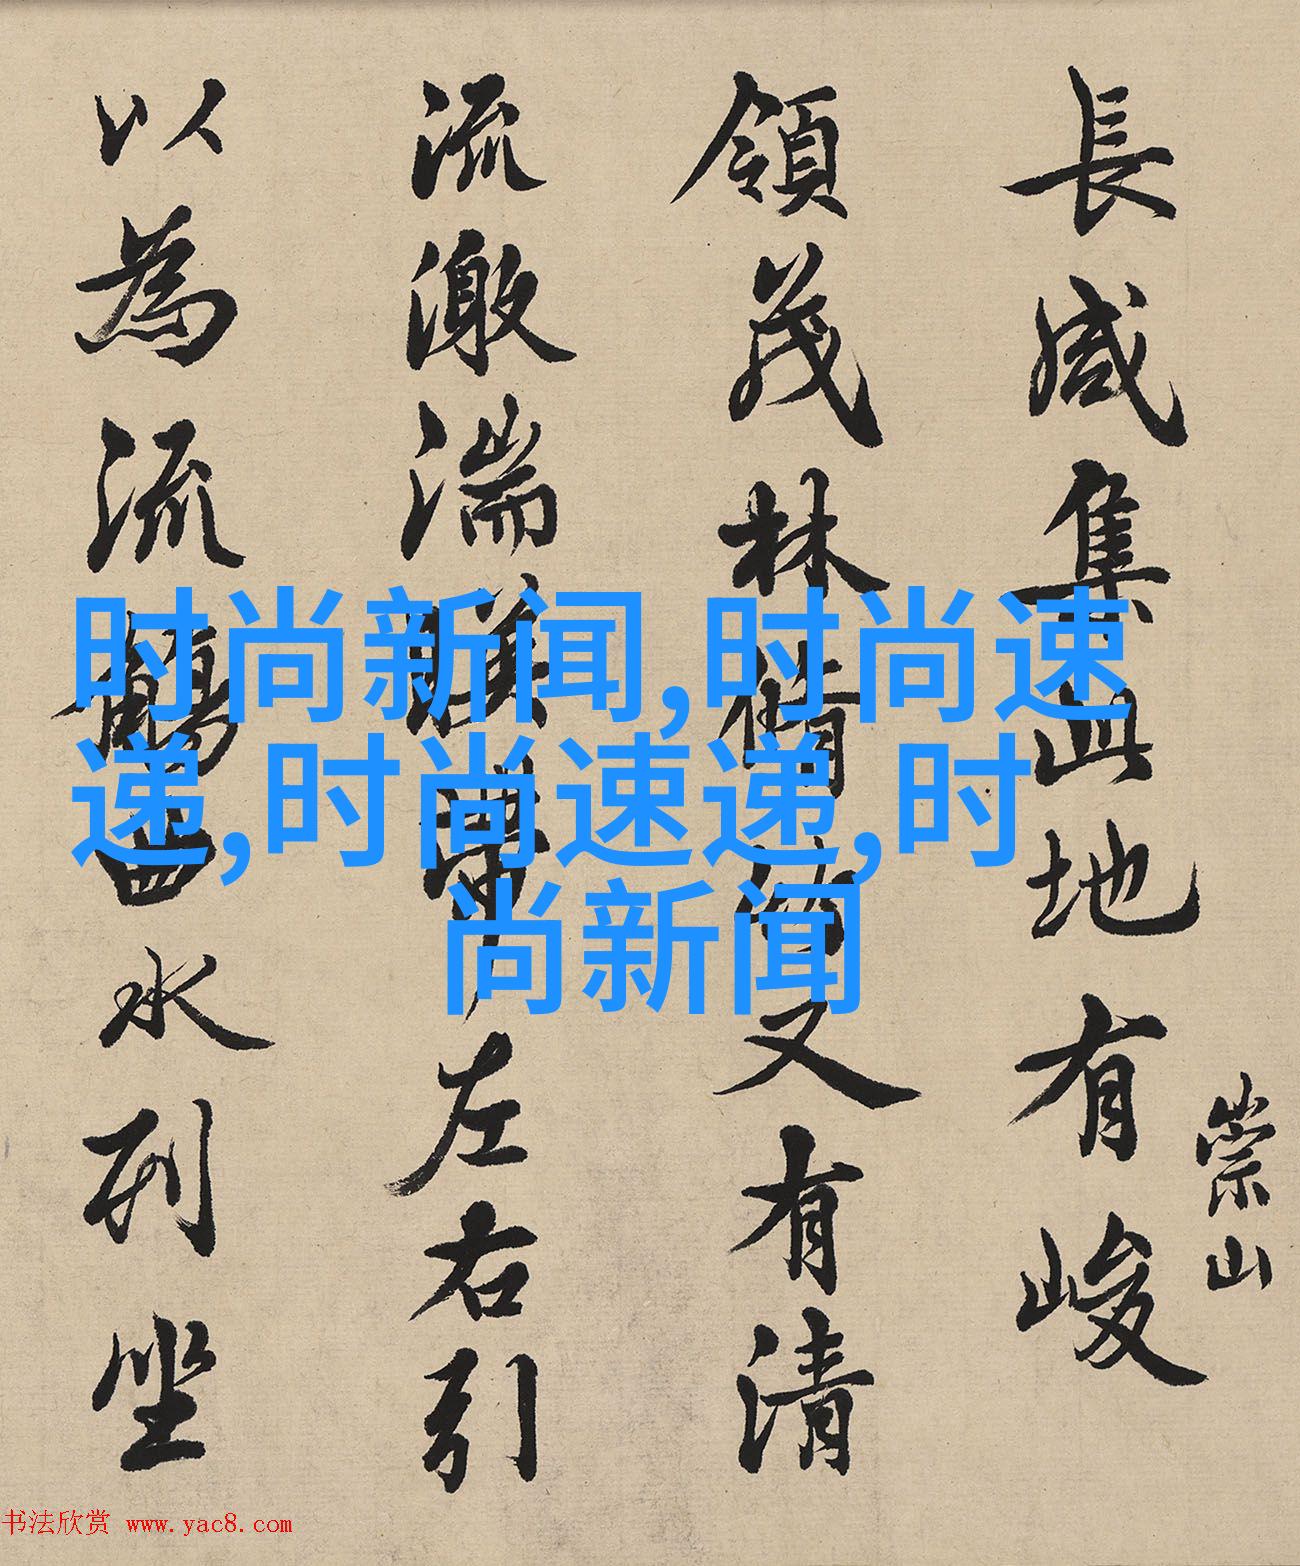 長咸集此地有峻
崇山
領茂林脩竹又有清
流激湍暎帶左右引
以為流觴曲水列坐
时尚新闻,时尚速
递,时尚速递,时
尚新闻
书法欣赏 www.yac8.com